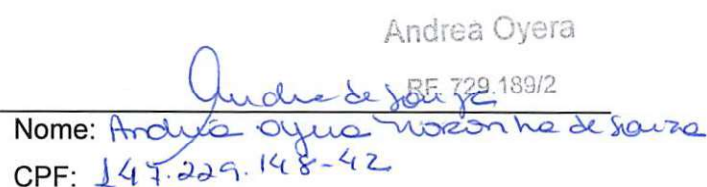 Andrea Oyera
RF 729.189/2
Andrea de Souza
Nome: Andréa Oyera Noronha de Souza
CPF: 147.229.148-42